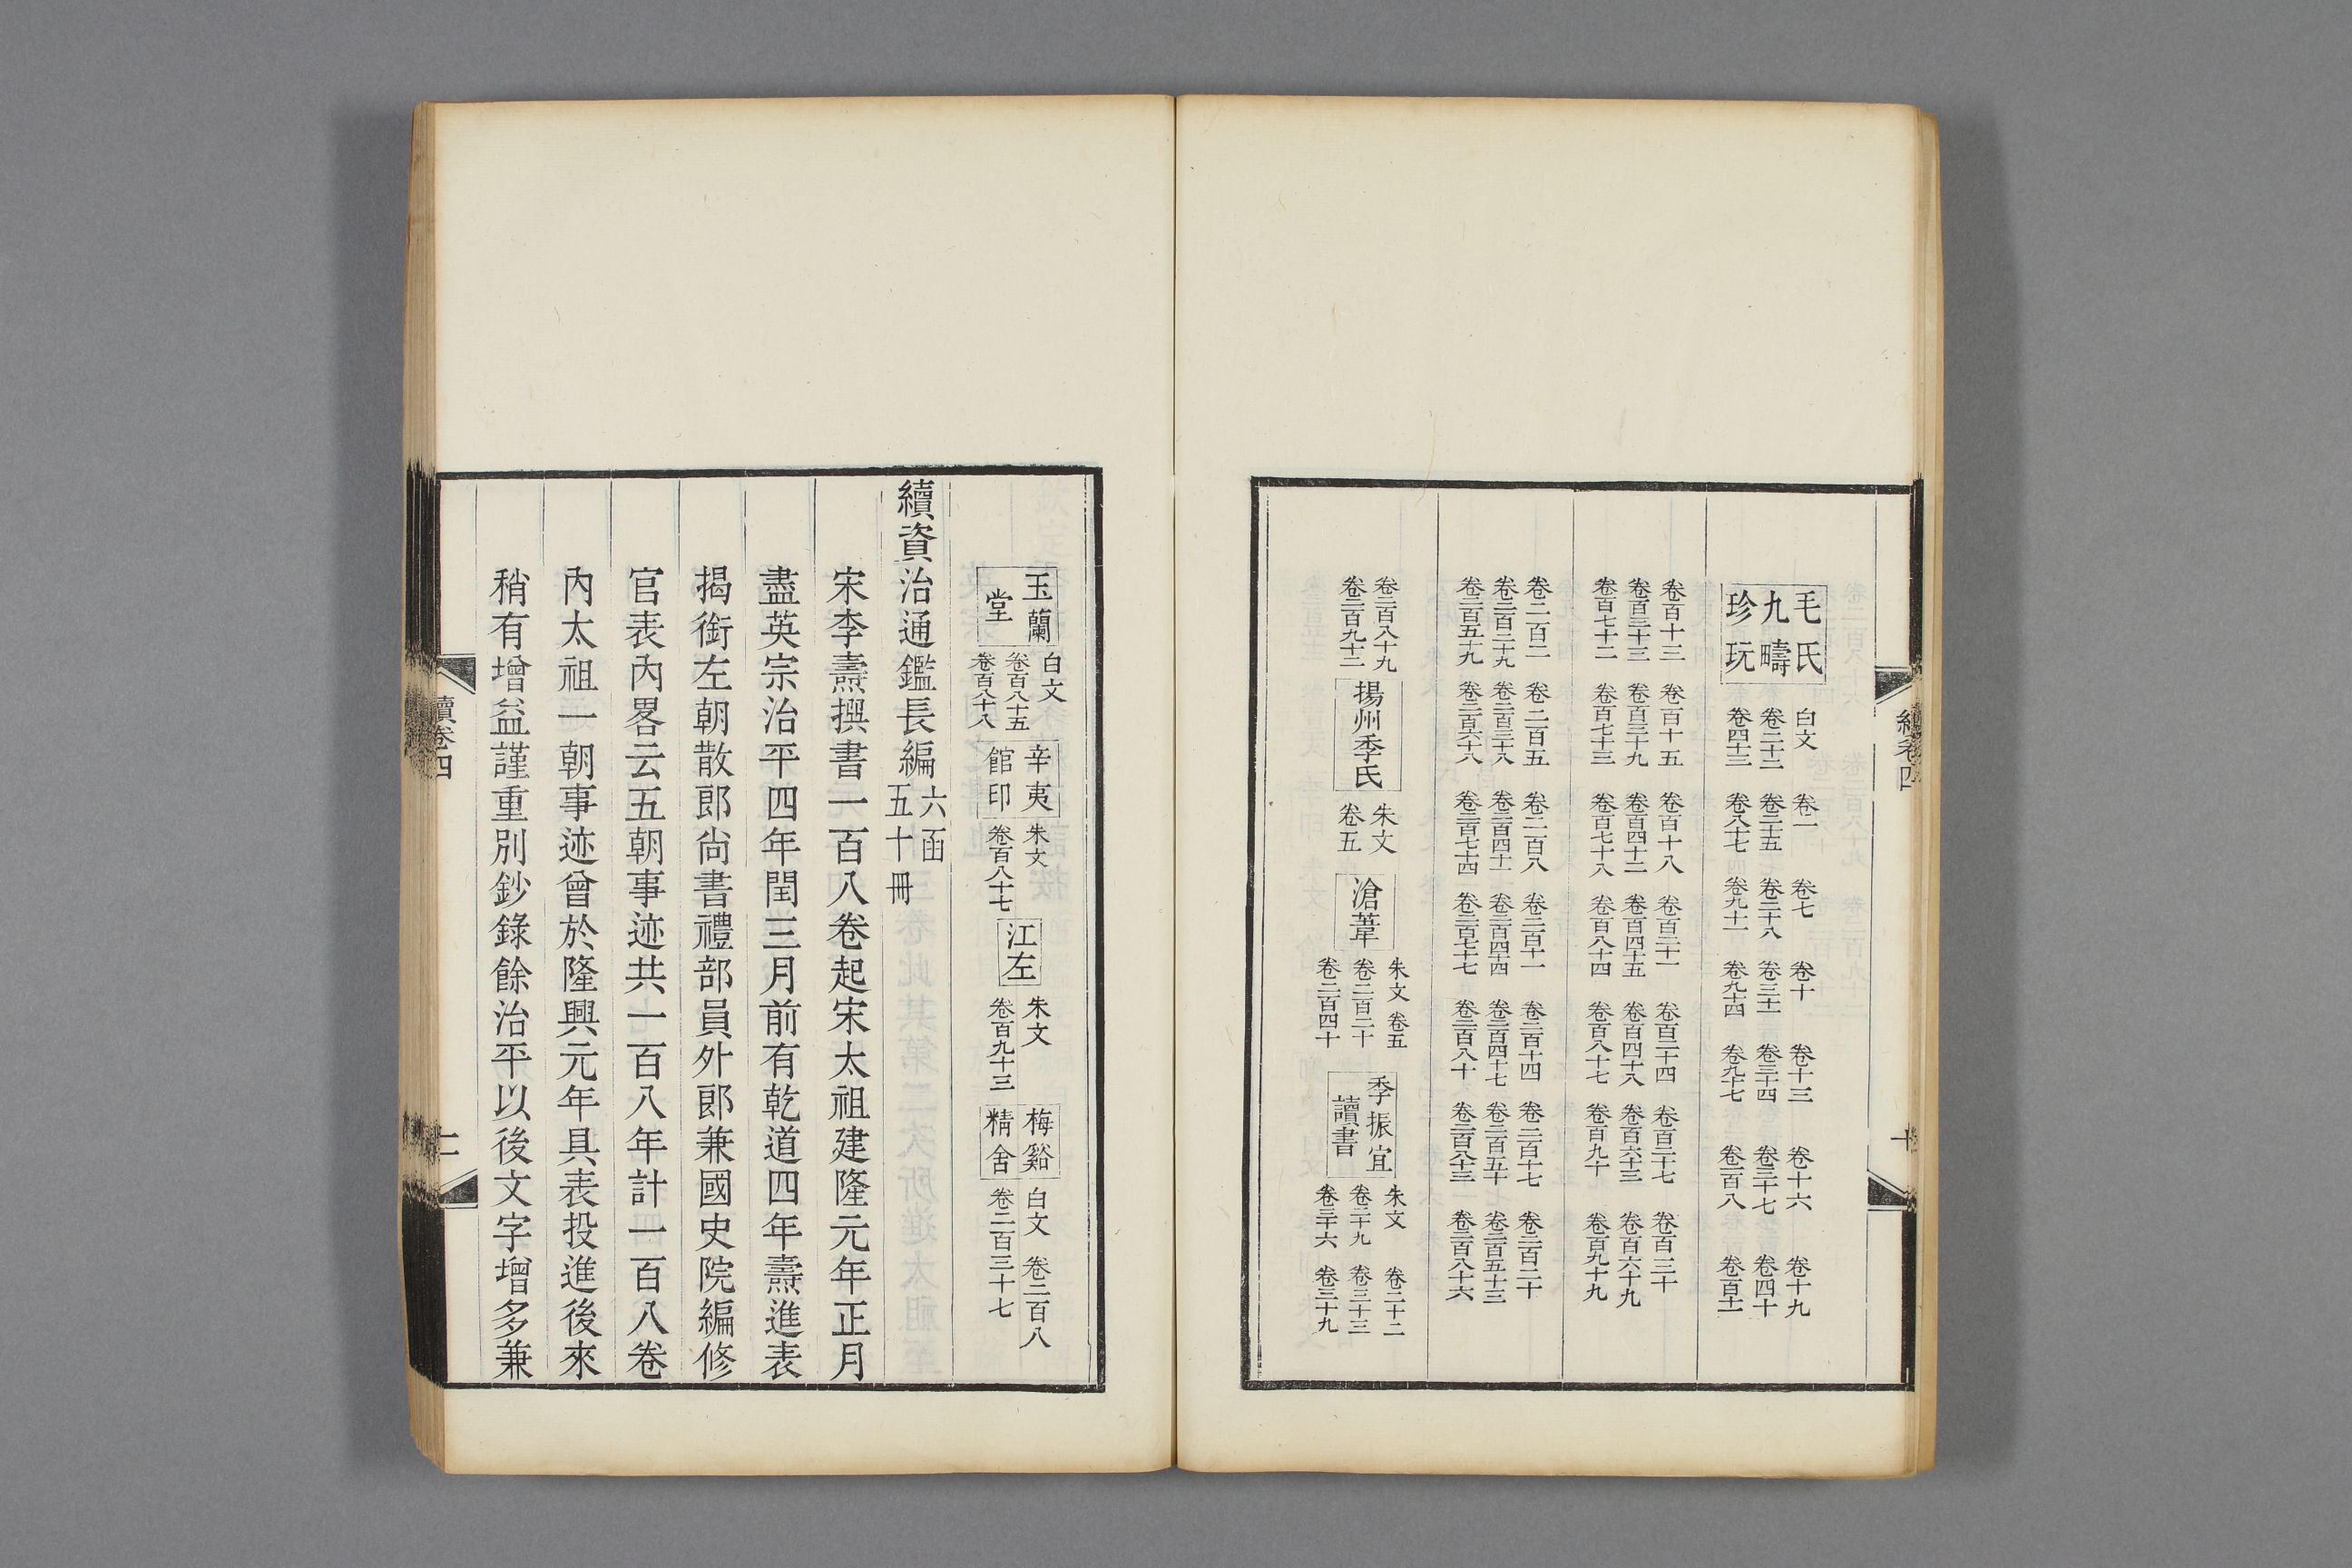 毛氏九疇珍玩 白文 卷一 卷七 卷十 卷十三 卷十六 卷十九
卷二十二 卷二十五 卷二十八 卷三十一 卷三十四 卷三十七 卷四十
卷四十三 卷八十七 卷九十一 卷九十四 卷九十七 卷一百八 卷百十一
卷百十三 卷一百十五 卷百十八 卷百二十一 卷百二十四 卷百二十七 卷百三十
卷百三十三 卷百三十九 卷百四十二 卷百四十五 卷百四十八 卷百六十三 卷百六十九
卷百七十二 卷百七十三 卷百七十八 卷百八十四 卷百八十七 卷百九十 卷百九十九
卷二百二 卷二百五 卷二百八 卷二百十一 卷二百十四 卷二百十七 卷二百二十
卷二百二十九 卷二百三十八 卷二百四十一 卷二百四十四 卷二百四十七 卷二百五十 卷二百五十三
卷二百五十九 卷二百六十八 卷二百七十四 卷二百七十七 卷二百八十 卷二百八十三 卷二百八十六
卷二百八十九 卷二百九十二 揚州季氏 朱文 卷五 滄葦 朱文 卷五 卷二百二十 卷二百四十 季振宜讀書 朱文 卷二十二 卷二十九 卷三十三 卷三十六 卷三十九
玉蘭堂 白文 卷百八十五 卷百八十八 辛夷館印 朱文 卷百八十七 江左 朱文 卷百九十三 梅谿精舍 白文 卷二百八 卷二百三十七
續資治通鑑長編 六函 五十冊
宋李燾撰書一百八卷起宋太祖建隆元年正月
盡英宗治平四年閏三月前有乾道四年燾進表
揭銜左朝散郎尚書禮部員外郎兼國史院編修
官表內畧云五朝事迹共一百八年計一百八卷
內太祖一朝事迹曾於隆興元年具表投進後來
稍有增益謹重別鈔錄餘治平以後文字增多兼
續卷四